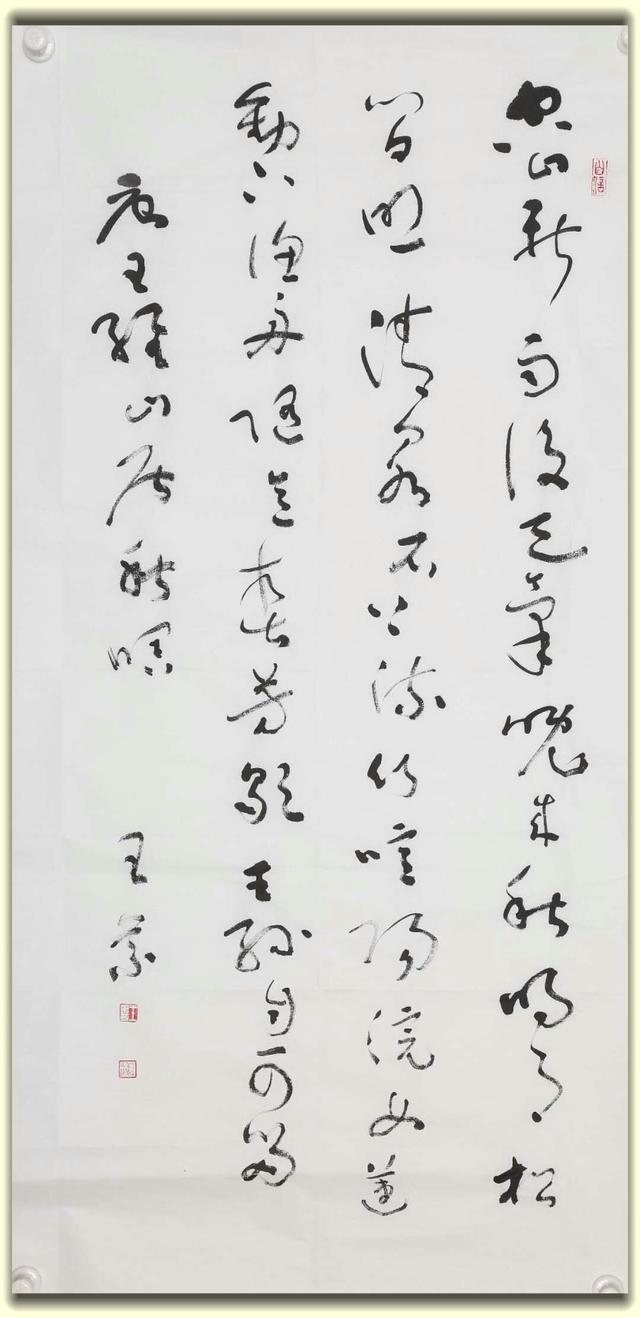 空山新雨後天氣晚來秋明月松
間照清泉石上流竹喧歸浣女蓮
動下漁舟隨意春芳歇王孫自可留
唐王維山居秋暝 王